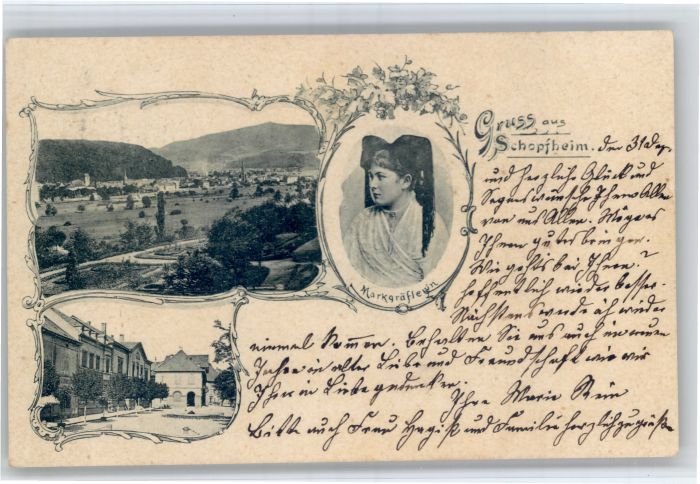 Gruss aus
Schopfheim. den 31 Dez.
und herzliche Glück und
Segenswünsche Ihnen Allen
von uns Allen. Möge es
Ihnen gutes bringen.
Wie gehts bei Ihnen?
hoffentlich wieder besser.
Nächstens werde ich wieder
einmal kommen. Behalten Sie uns auch im neuen
Jahre in alter Liebe und Freundschaft wie wir
Ihrer in Liebe gedenken.
Ihre Marie Stein
Bitte auch Frau und Familie herzlich zu grüßen
Markgräflerin